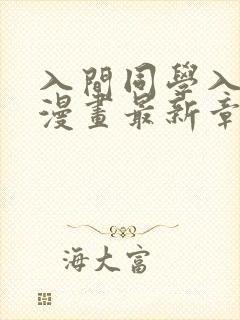 入間同學入
漫畫最新章
海大富